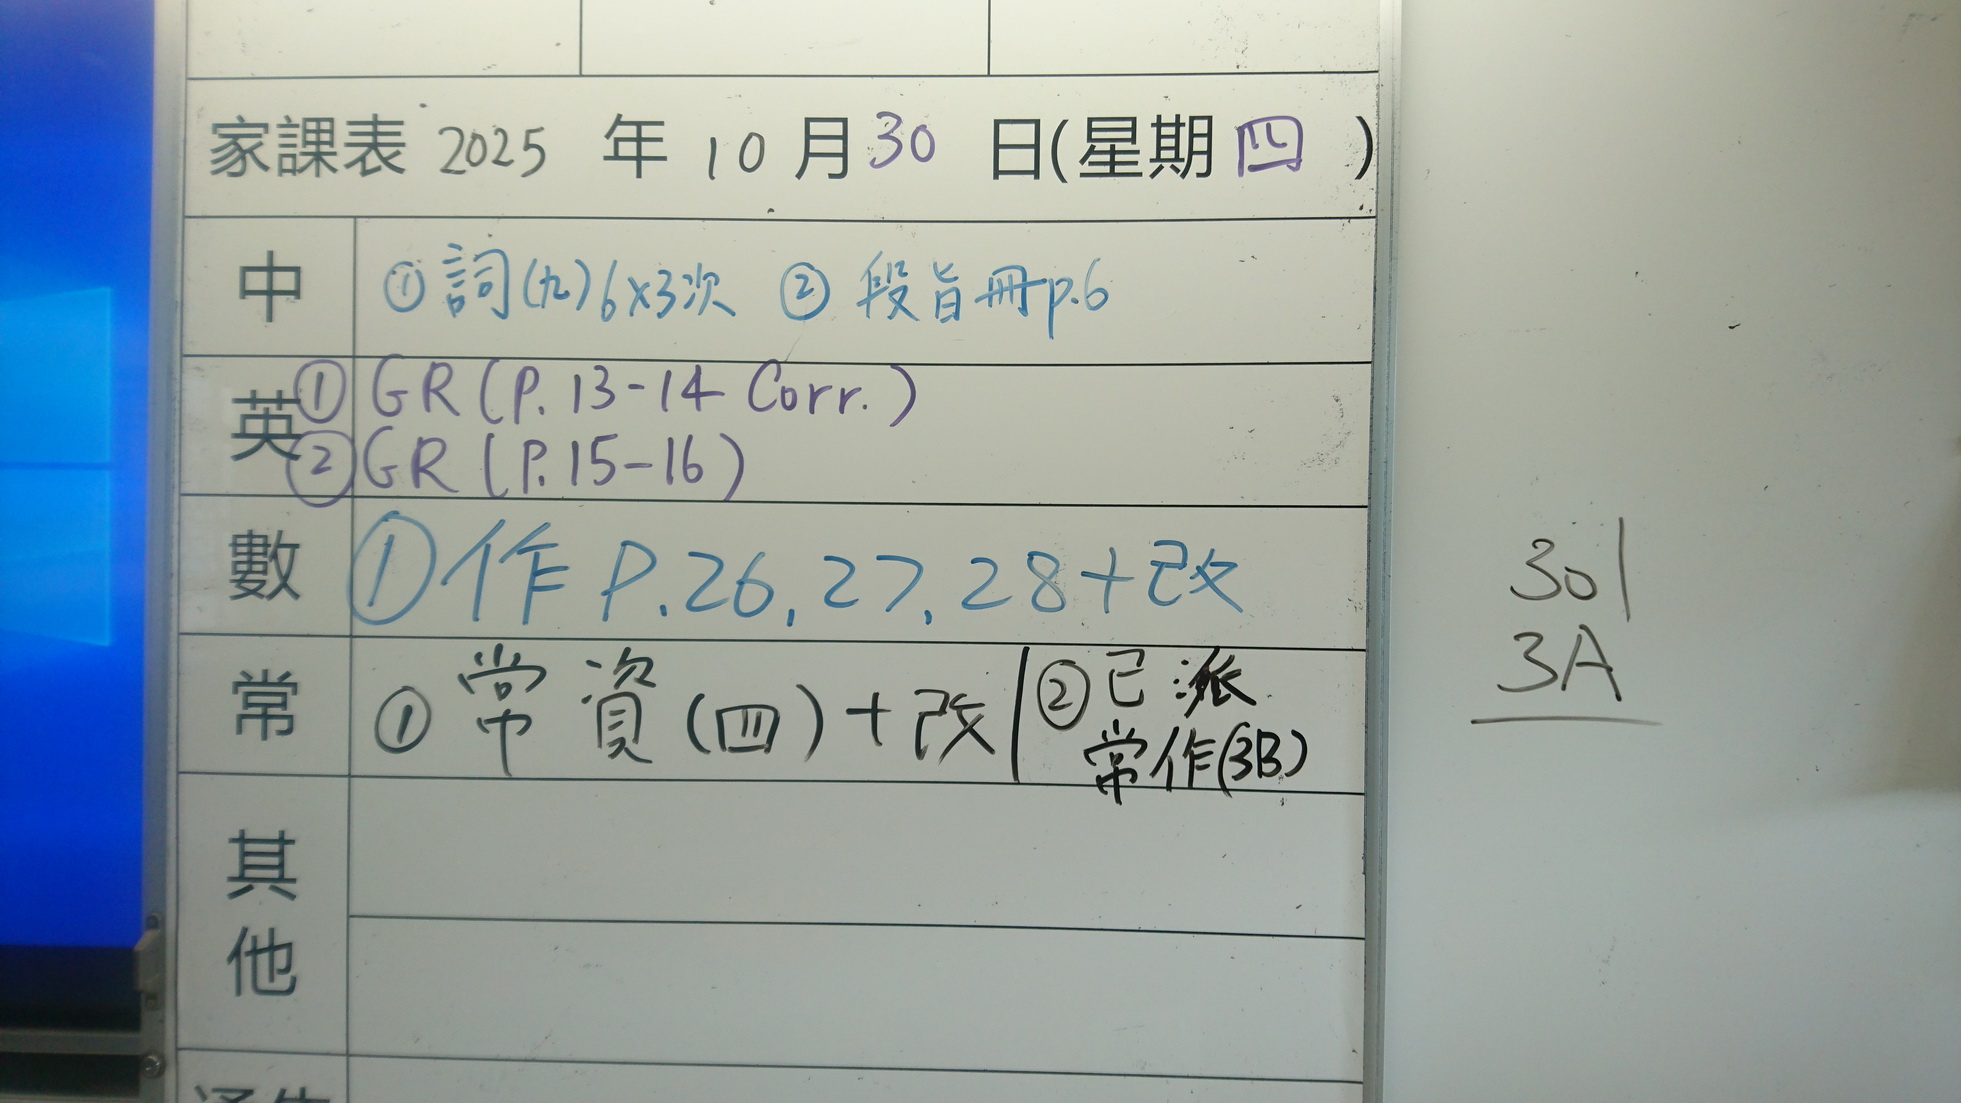 家課表 2025 年 10 月 30 日(星期 四 )
中 ① 詞(九)6x3次 ② 段旨冊p.6
英 ① GR (P. 13-14 Corr.)
② GR (P. 15-16)
數 ① 作 P. 26, 27, 28 + 改
常 ① 常資(四) + 改 ② 已派
常作(3B)
其
他
301
3A